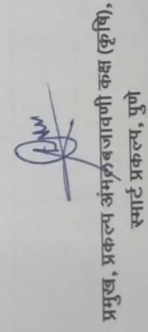 प्रमुख, प्रकल्प अंमलबजावणी कक्ष (कृषि),
स्मार्ट प्रकल्प, पुणे